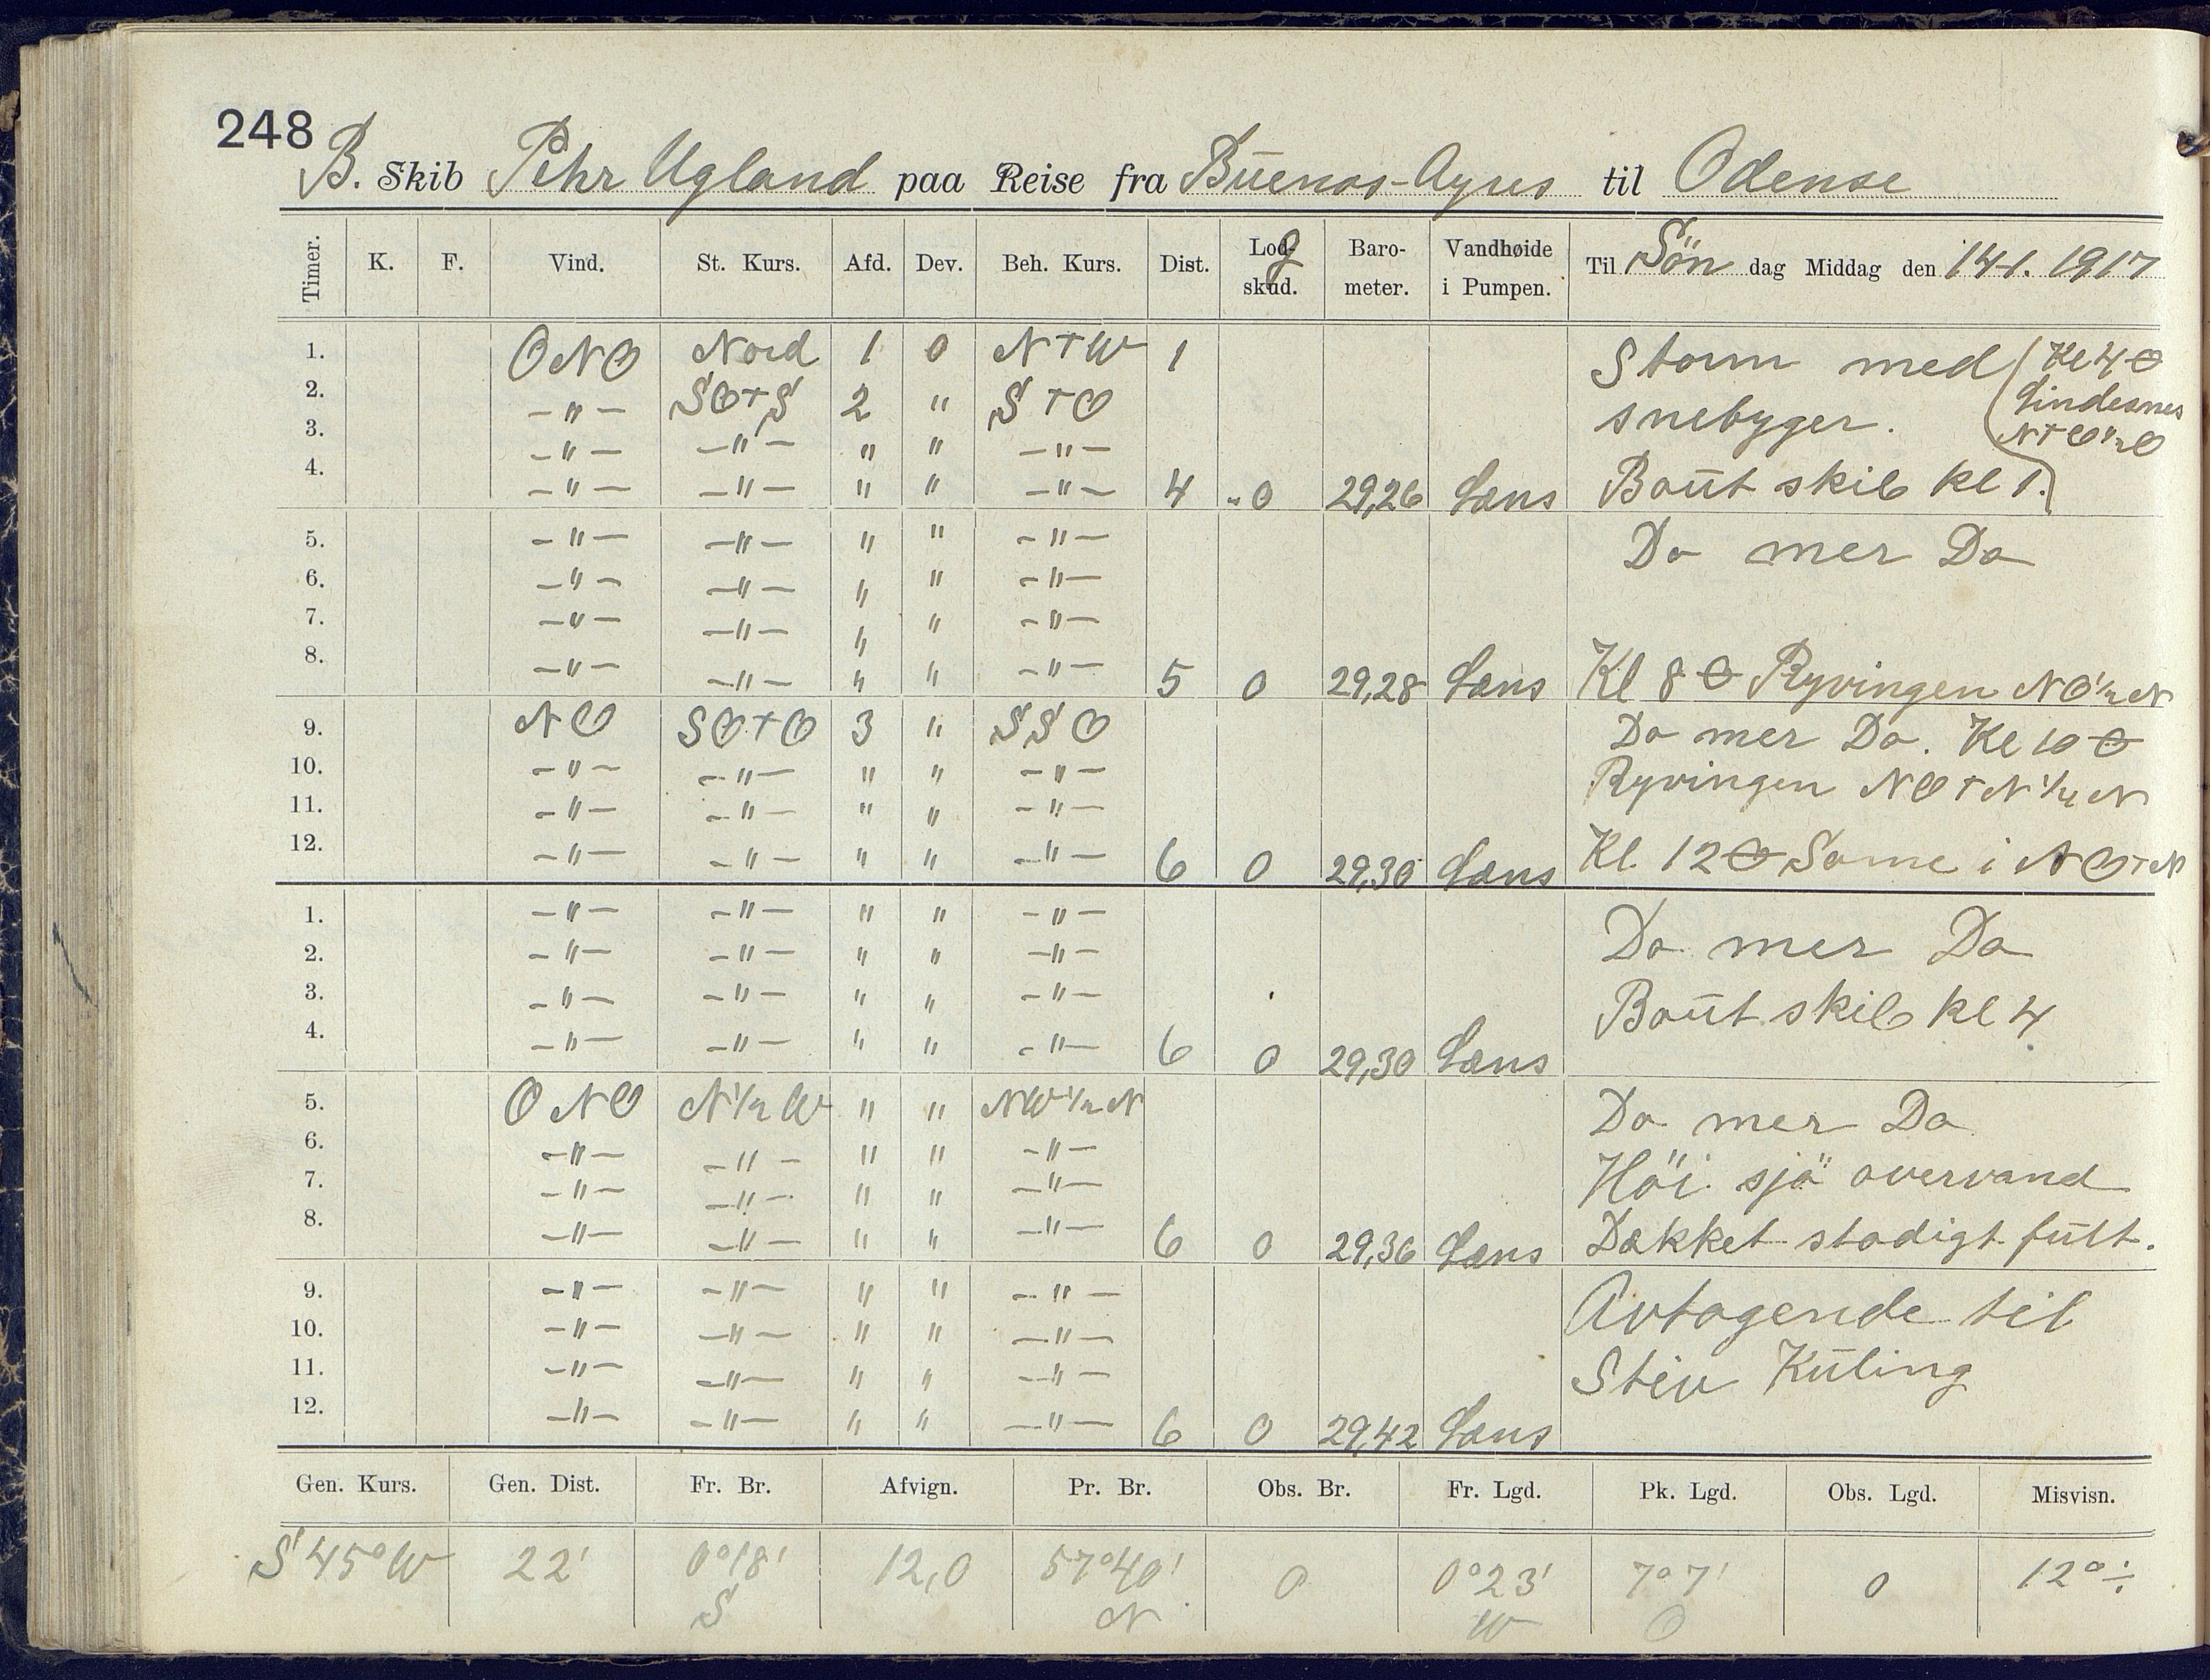 248
B. Skib Pehr Ugland paa Reise fra Buenos-Ayres til Odense
Timer. K. F. Vind. St. Kurs. Afd. Dev. Beh. Kurs. Dist. Logskud. Baro-meter. Vandhøide i Pumpen. Til Søn dag Middag den 14-1. 1917
1. ONO Nord 1 0 N t W 1 Storm med (Kl 4 O
2. -"- SO t S 2 " S t O snebyger. Lindesnes
3. -"- -"- " " -"- N t O ½ O
4. -"- -"- " " -"- 4 "0 29,26 Læns Bout skib kl 1.)
5. -"- -"- " " -"- Do mer Do
6. -"- -"- " " -"-
7. -"- -"- " " -"-
8. -"- -"- " " -"- 5 0 29,28 Læns Kl 8 O Ryvingen NO ½ N
9. NO SO t O 3 " SSO Do mer Do. Kl 10 O
10. -"- -"- " " -"- Ryvingen NO t N ½ N
11. -"- -"- " " -"-
12. -"- -"- " " -"- 6 0 29,30 Læns Kl. 12 O Same i NO t N
1. -"- -"- " " -"- Do mer Do
2. -"- -"- " " -"-
3. -"- -"- " " -"- Bout skib kl 4
4. -"- -"- " " -"- 6 0 29,30 Læns
5. ONO N ½ W " " NW ½ N Do mer Do
6. -"- -"- " " -"- Höi sjö overvand
7. -"- -"- " " -"-
8. -"- -"- " " -"- 6 0 29,36 Læns Dækket stadigt fult.
9. -"- -"- " " -"- Avtagende til
10. -"- -"- " " -"-
11. -"- -"- " " -"- Stiv Kuling
12. -"- -"- " " -"- 6 0 29,42 Læns
Gen. Kurs. Gen. Dist. Fr. Br. Afvign. Pr. Br. Obs. Br. Fr. Lgd. Pk. Lgd. Obs. Lgd. Misvisn.
S 45° W 22' 0°18' S 12,0 57°40' N 0 0°23' W 7°7' O 0 12° ÷